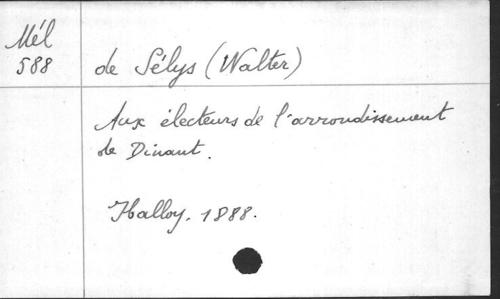 Mél
588
de Sélys (Walter)
Aux électeurs de l'arrondissement
de Dinant.
Halloy. 1888.